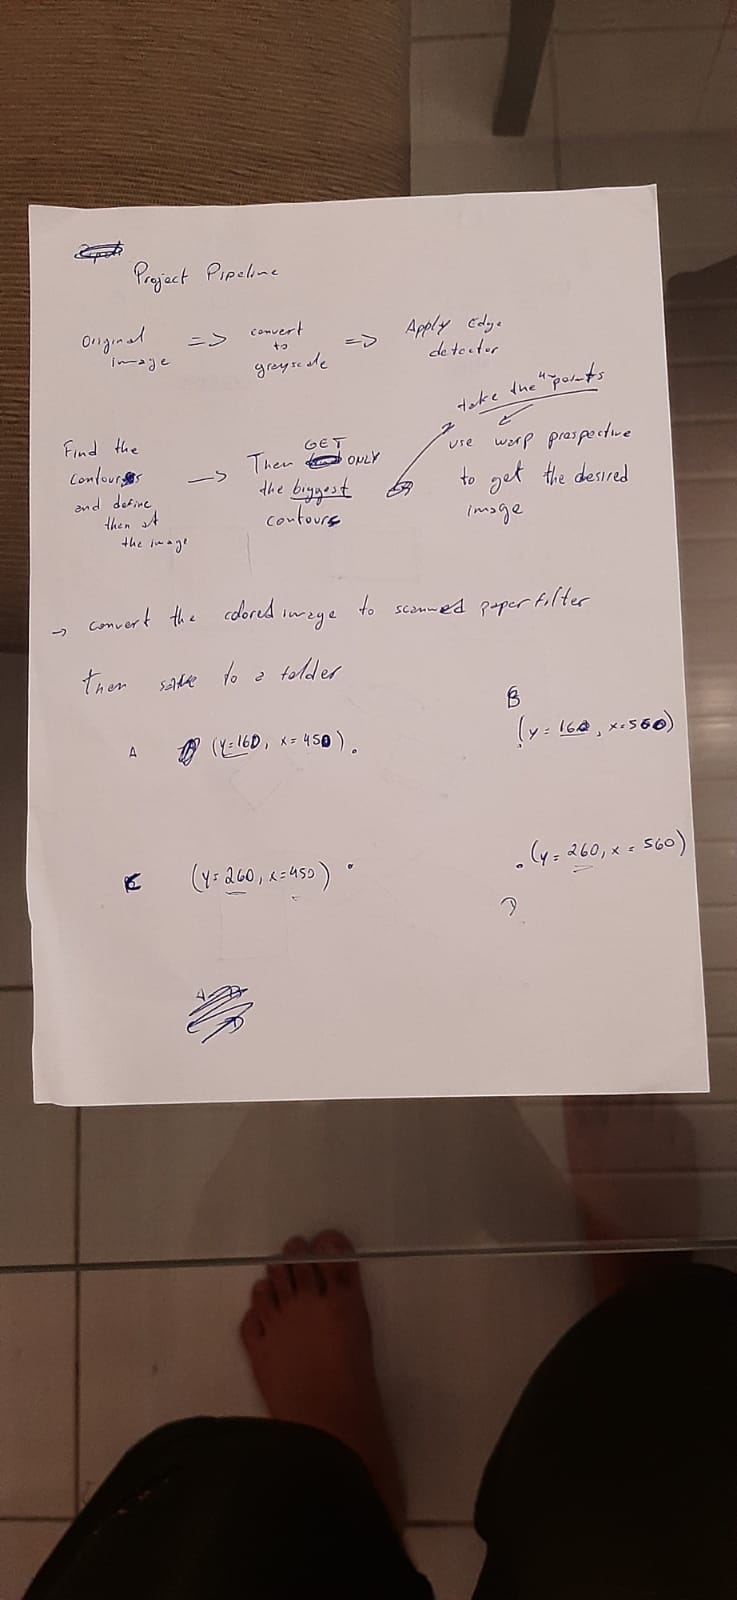 Project Pipeline
Original image => convert to greyscale => Apply Edge detector
Find the
contours
and define
then at
the image
->
Then GET ONLY
the biggest
contours
take the 4 points
use warp prespective
to get the desired
image
-> convert the colored image to scanned paper filter
Then save to a folder
A (y=160, x=450).
B
(y=160, x=560)
C (y=260, x=450)
.(y=260, x=560)